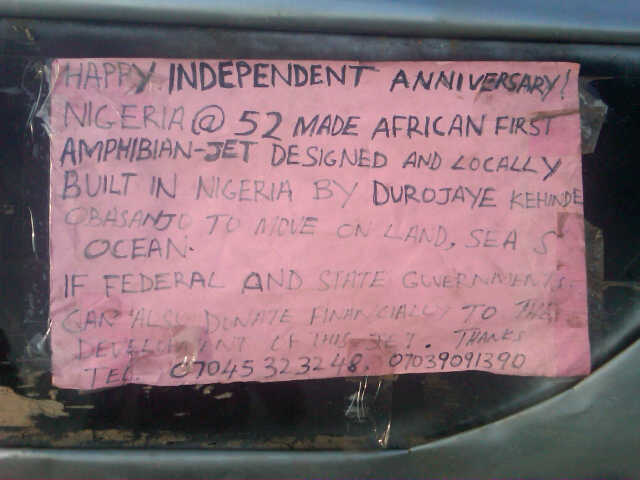 HAPPY INDEPENDENT ANNIVERSARY!
NIGERIA @ 52 MADE AFRICAN FIRST
AMPHIBIAN-JET DESIGNED AND LOCALLY
BUILT IN NIGERIA BY DUROJAYE KEHINDE
OBASANJO TO MOVE ON LAND, SEA
OCEAN.
IF FEDERAL AND STATE GOVERNMENTS
CAN ALSO DONATE FINANCIALLY TO THE
DEVELOPMENT OF THIS JET. THANKS
TEL. 07045323248, 07039091390